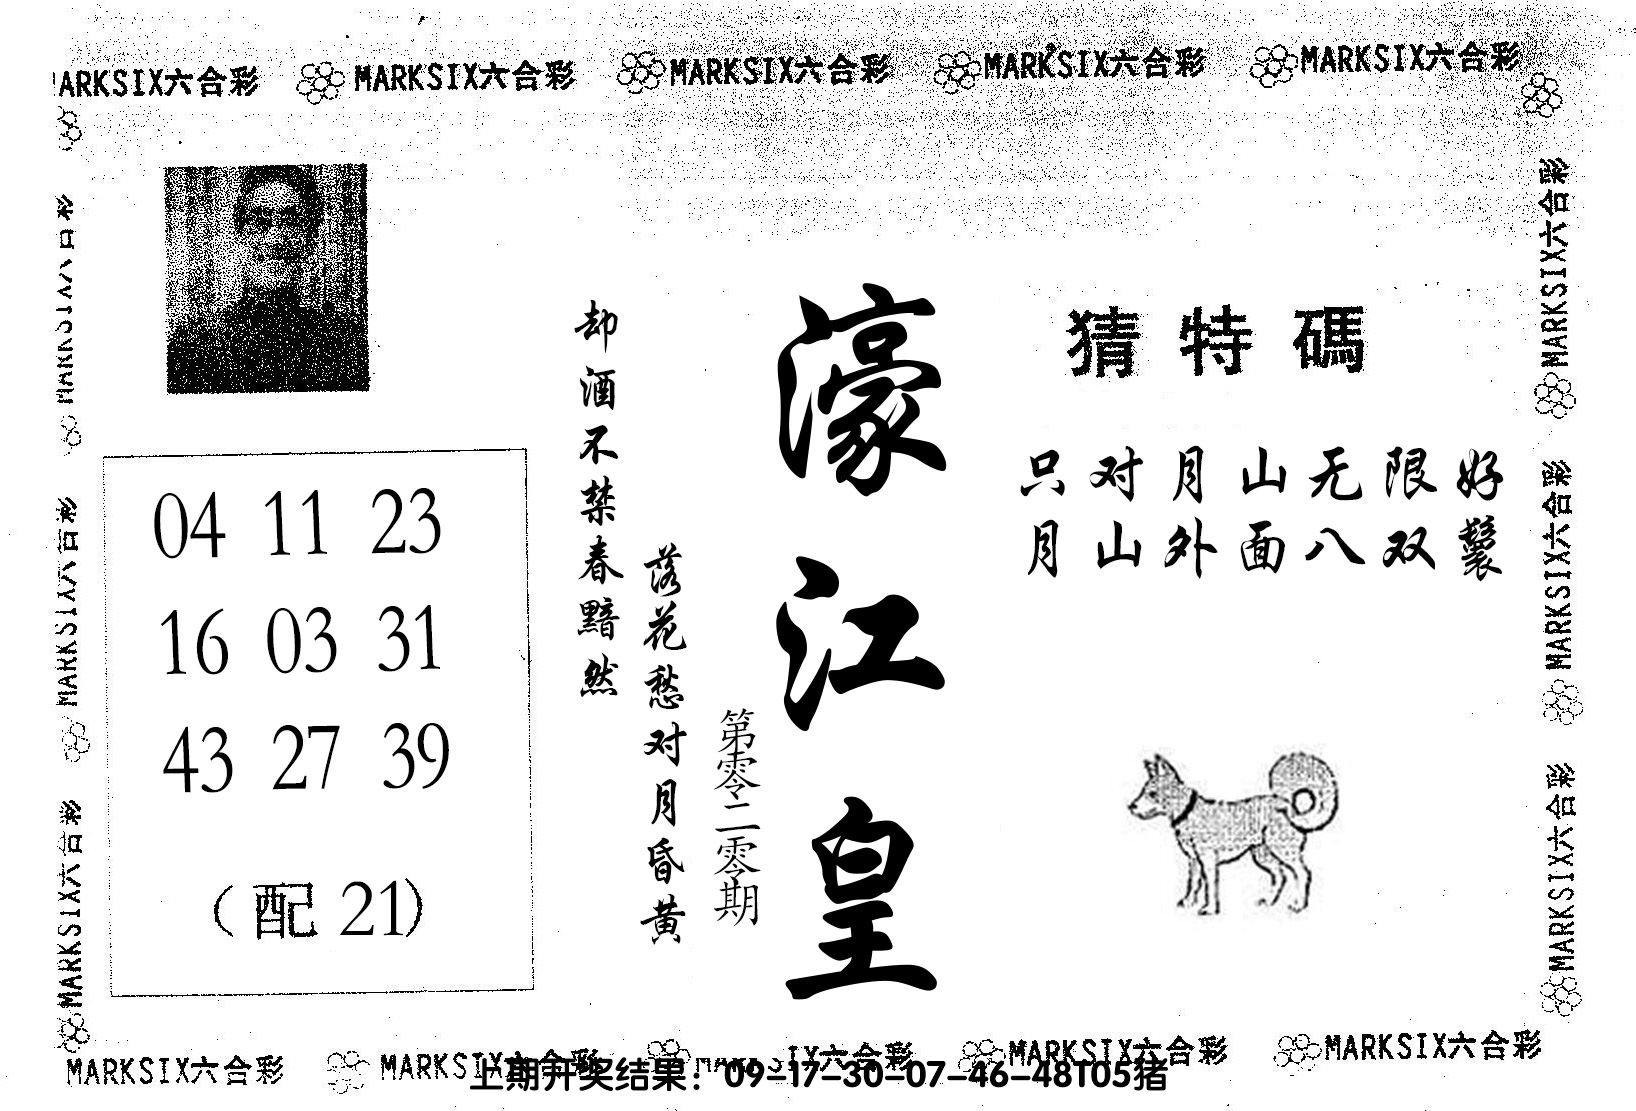 MARKSIX六合彩 MARKSIX六合彩 MARKSIX六合彩 MARKSIX六合彩
ARKSIX六合彩
猜特碼
只对月山无限好
月山外面八双鬟
濠江皇
第零二零期
落花愁对月昏黄
却酒不禁春黯然
04 11 23
16 03 31
43 27 39
（配 21）
MARKSIX六合彩
MARKSIX六合彩
MARKSIX六合彩
MARKSIX六合彩
MARKSIX六合彩
MARKSIX六合彩 MARKSIX六合彩 MARKSIX六合彩 MARKSIX六合彩
上期开奖结果：09-17-30-07-46-48T05猪